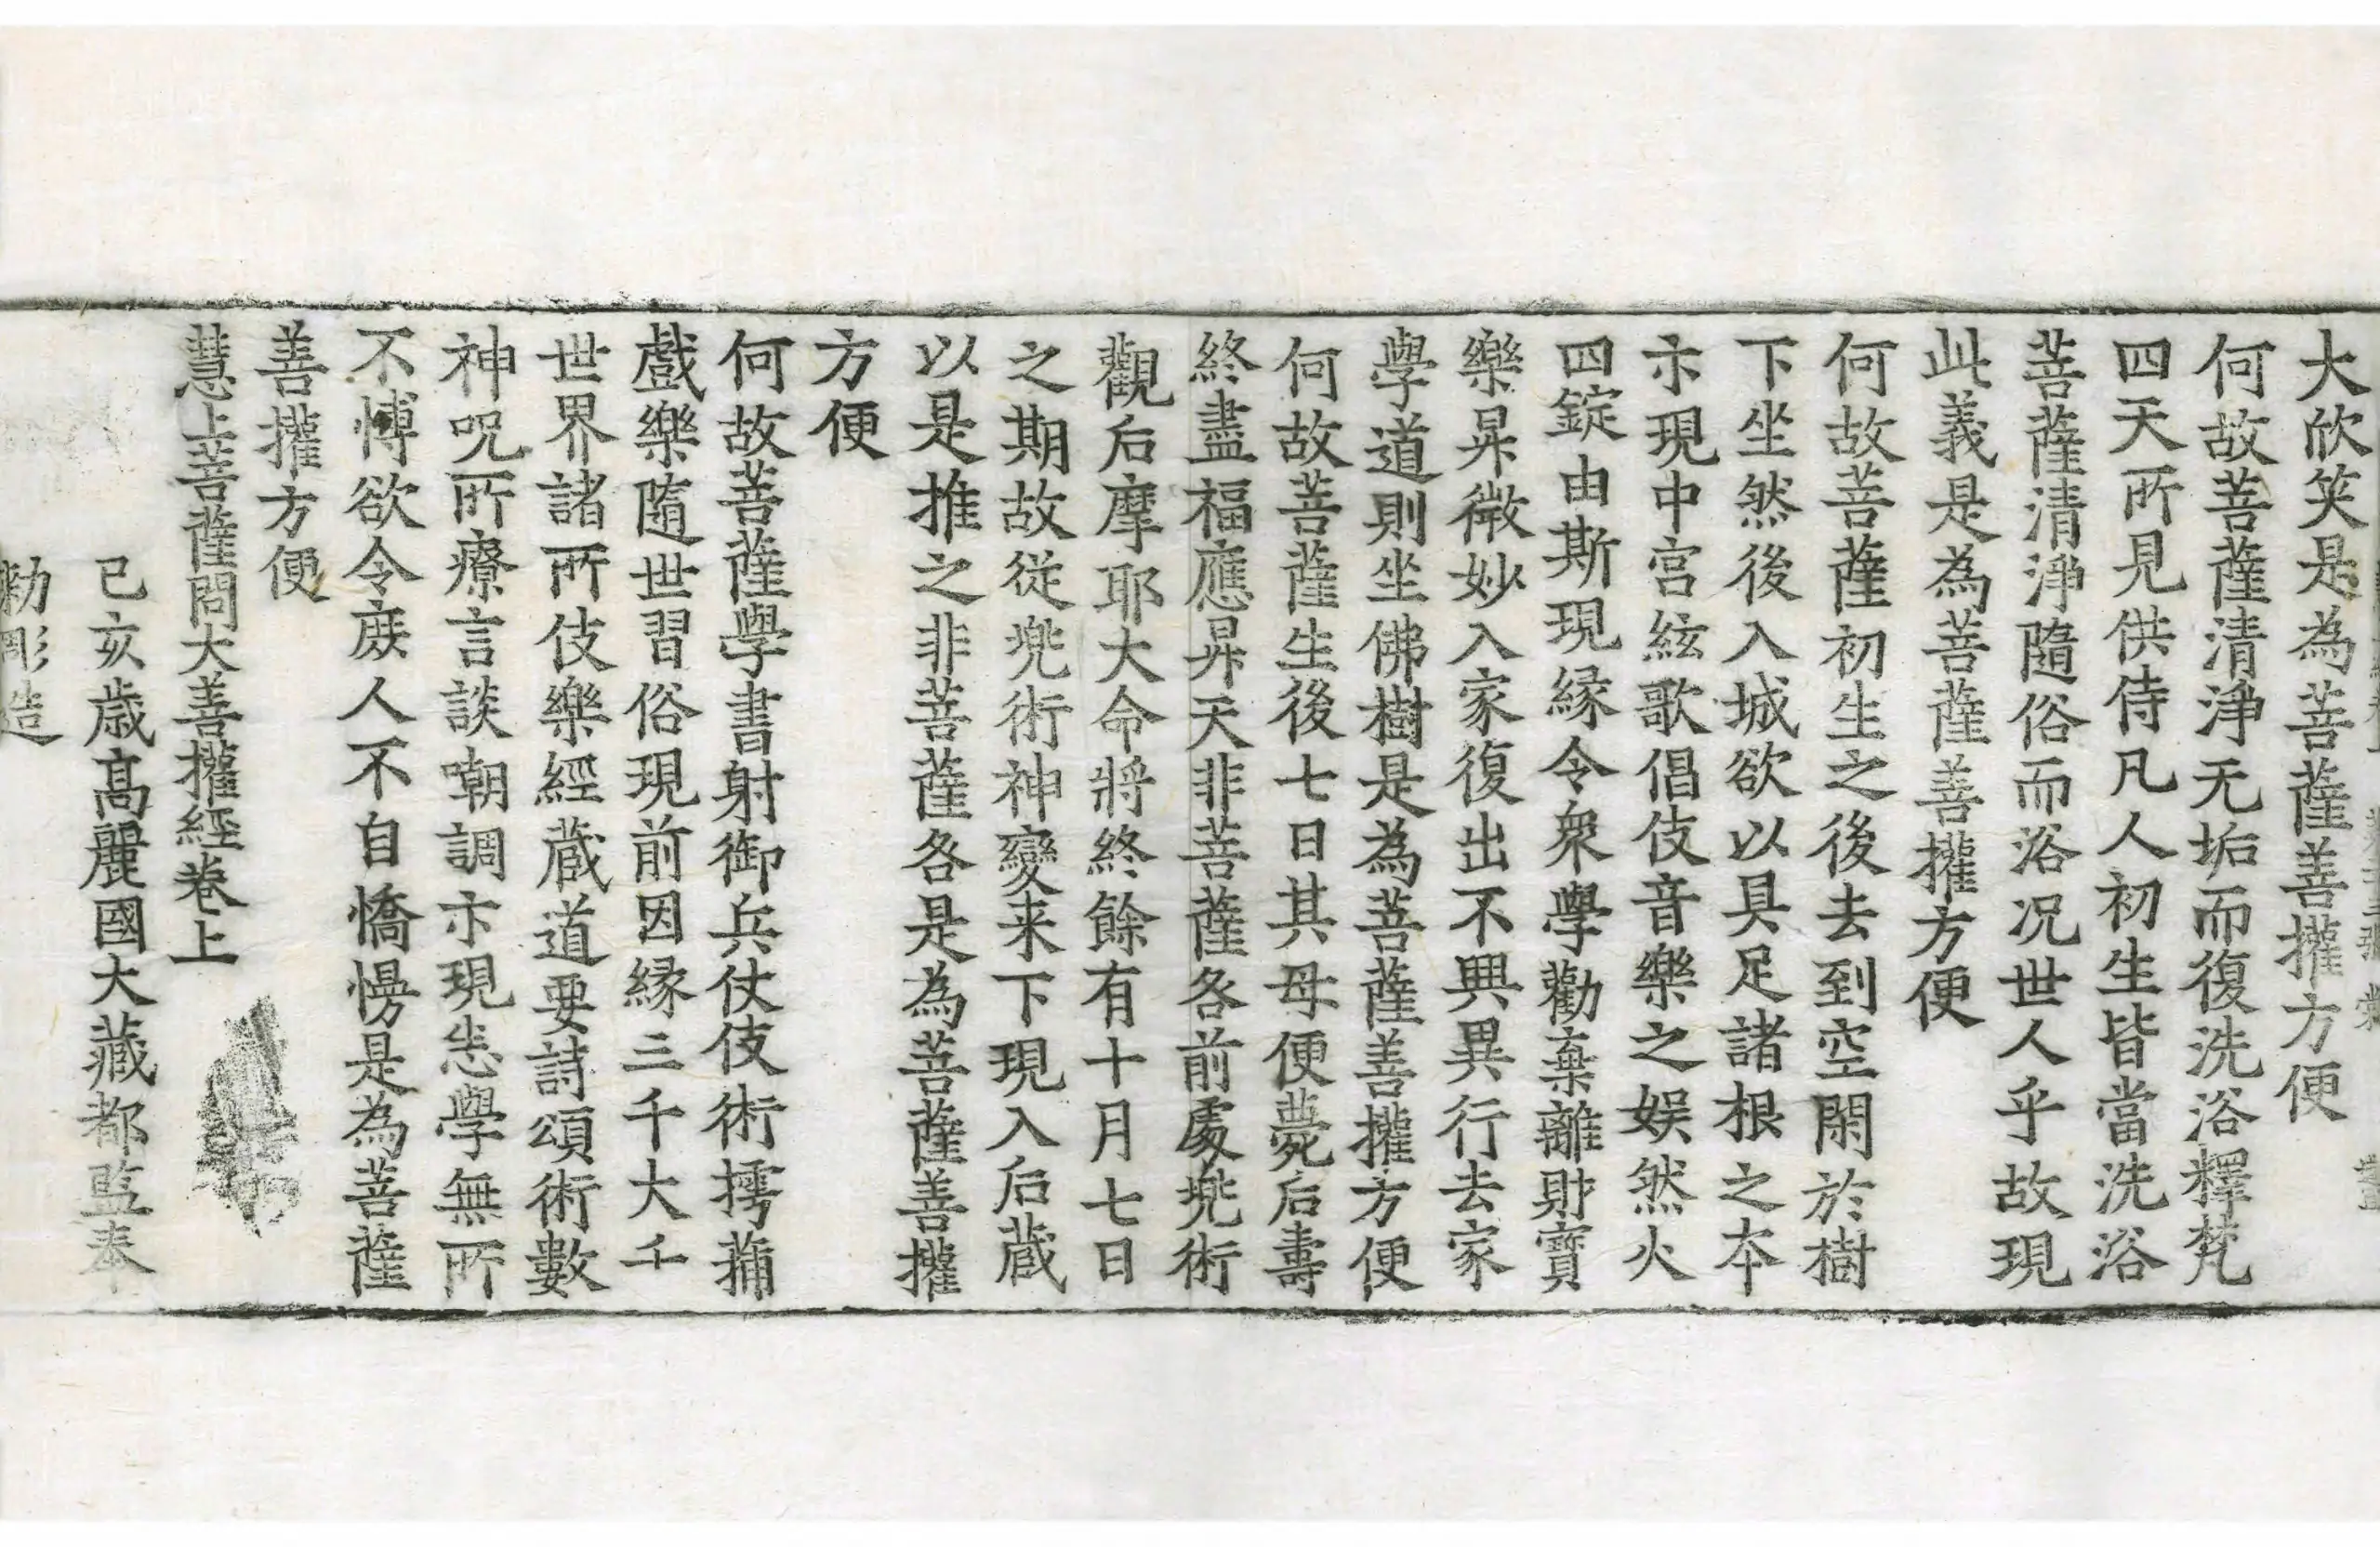 大欣笑是為菩薩善攉方便
何故菩薩清淨无垢而復洗浴釋梵
四天所見供侍凡人初生皆當洗浴
菩薩清淨隨俗而浴况世人乎故現
此義是為菩薩善攉方便
何故菩薩初生之後去到空閑於樹
下坐然後入城欲以具足諸根之本
亦現中宮絃歌倡伎音樂之娱然火
四錠由斯現縁令衆學勸棄離財寶
樂昇微妙入家復出不興異行去家
學道則坐佛樹是為菩薩善攉方便
何故菩薩生後七日其母便薨后壽
終盡福應昇天非菩薩咎前處兠術
觀后摩耶大命將終餘有十月七日
之期故從兠術神變来下現入后蔵
以是推之非菩薩咎是為菩薩善攉
方便
何故菩薩學書射御兵仗伎術摴蒱
戲樂隨世習俗現前因縁三千大千
世界諸所伎樂經蔵道要詩頌術數
神呪所療言談嘲調亦現恣學無所
不愽欲令庻人不自憍慢是為菩薩
善攉方便
慧上菩薩問大善攉經卷上
己亥歲高麗國大藏都監奉
勑彫造